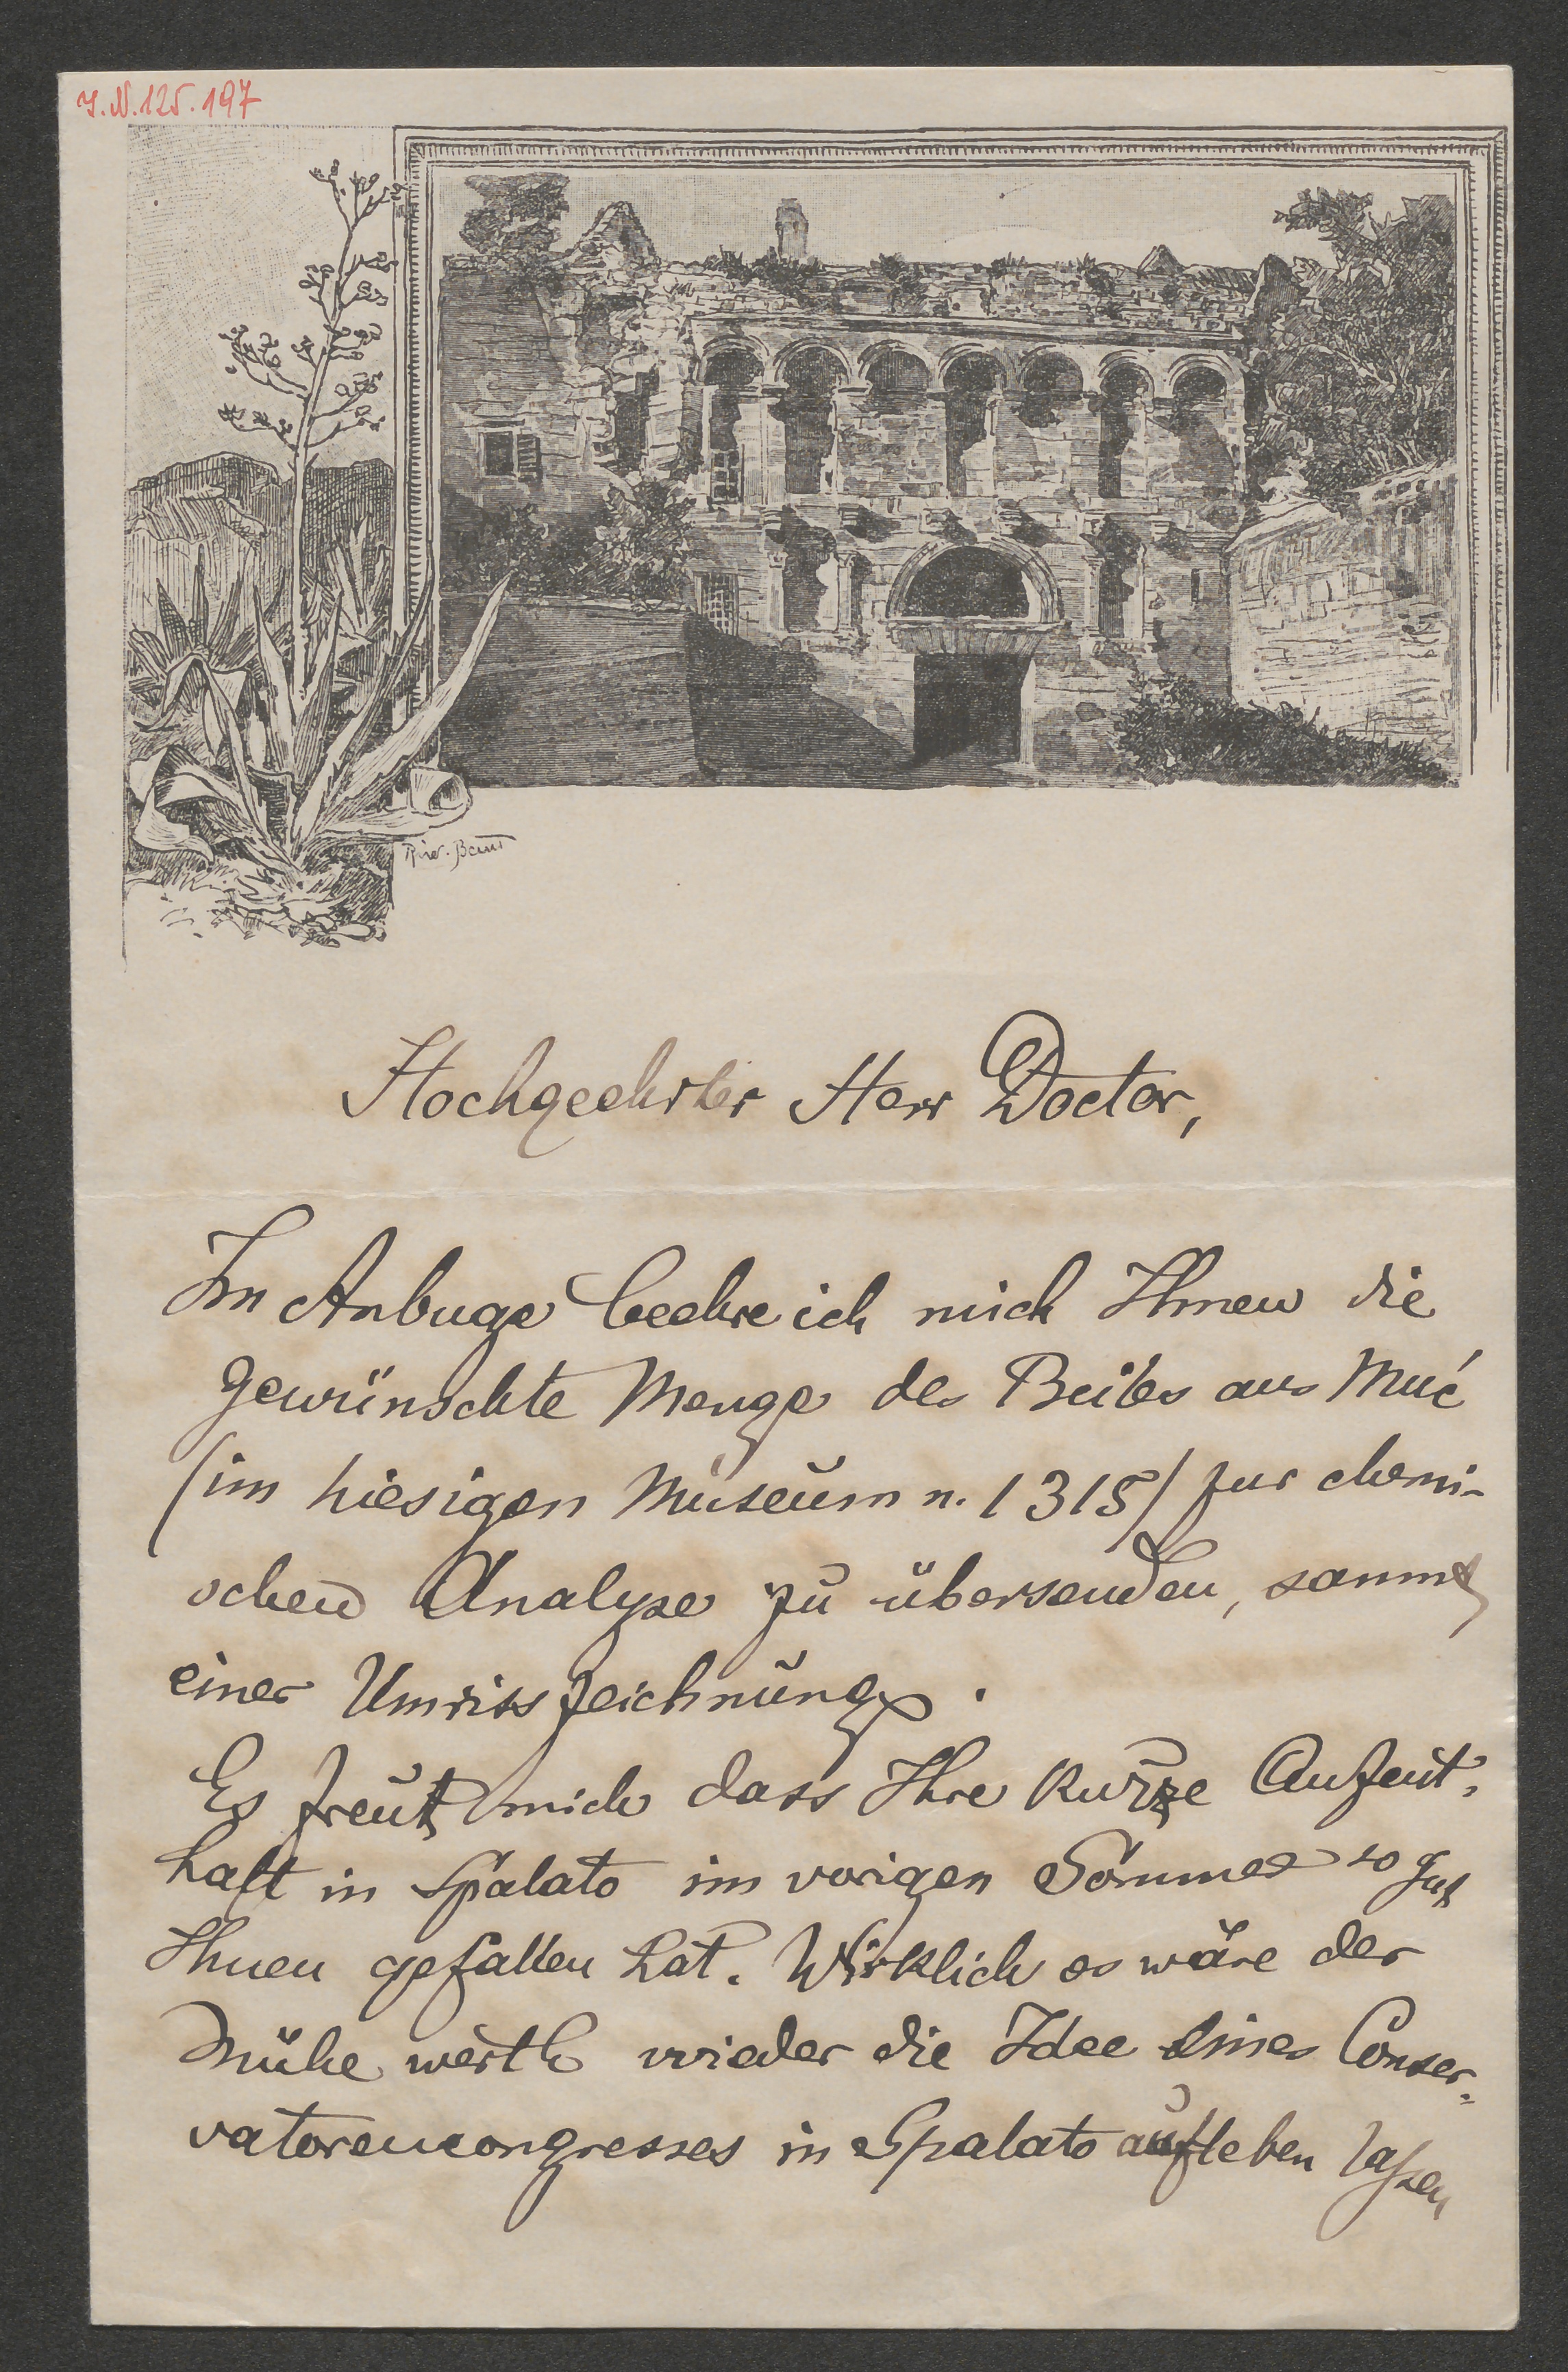 I.N. 125.197
Hochgeehrter Herr Doctor,
Im Anbuge beehre ich mich Ihnen die
gewünschte Menge des Beiles aus Muć
(im hiesigen Museum n. 1315) zur chemi-
schen Analyse zu übersenden, sammt
einer Umrisszeichnung.
Es freut mich dass Ihre kurze Aufent-
halt in Spalato im vorigen Sommer so gut
Ihnen gefallen hat. Wirklich es wäre der
Mühe werth wieder die Idee eines Conser-
vatorencongresses in Spalato aufleben lassen